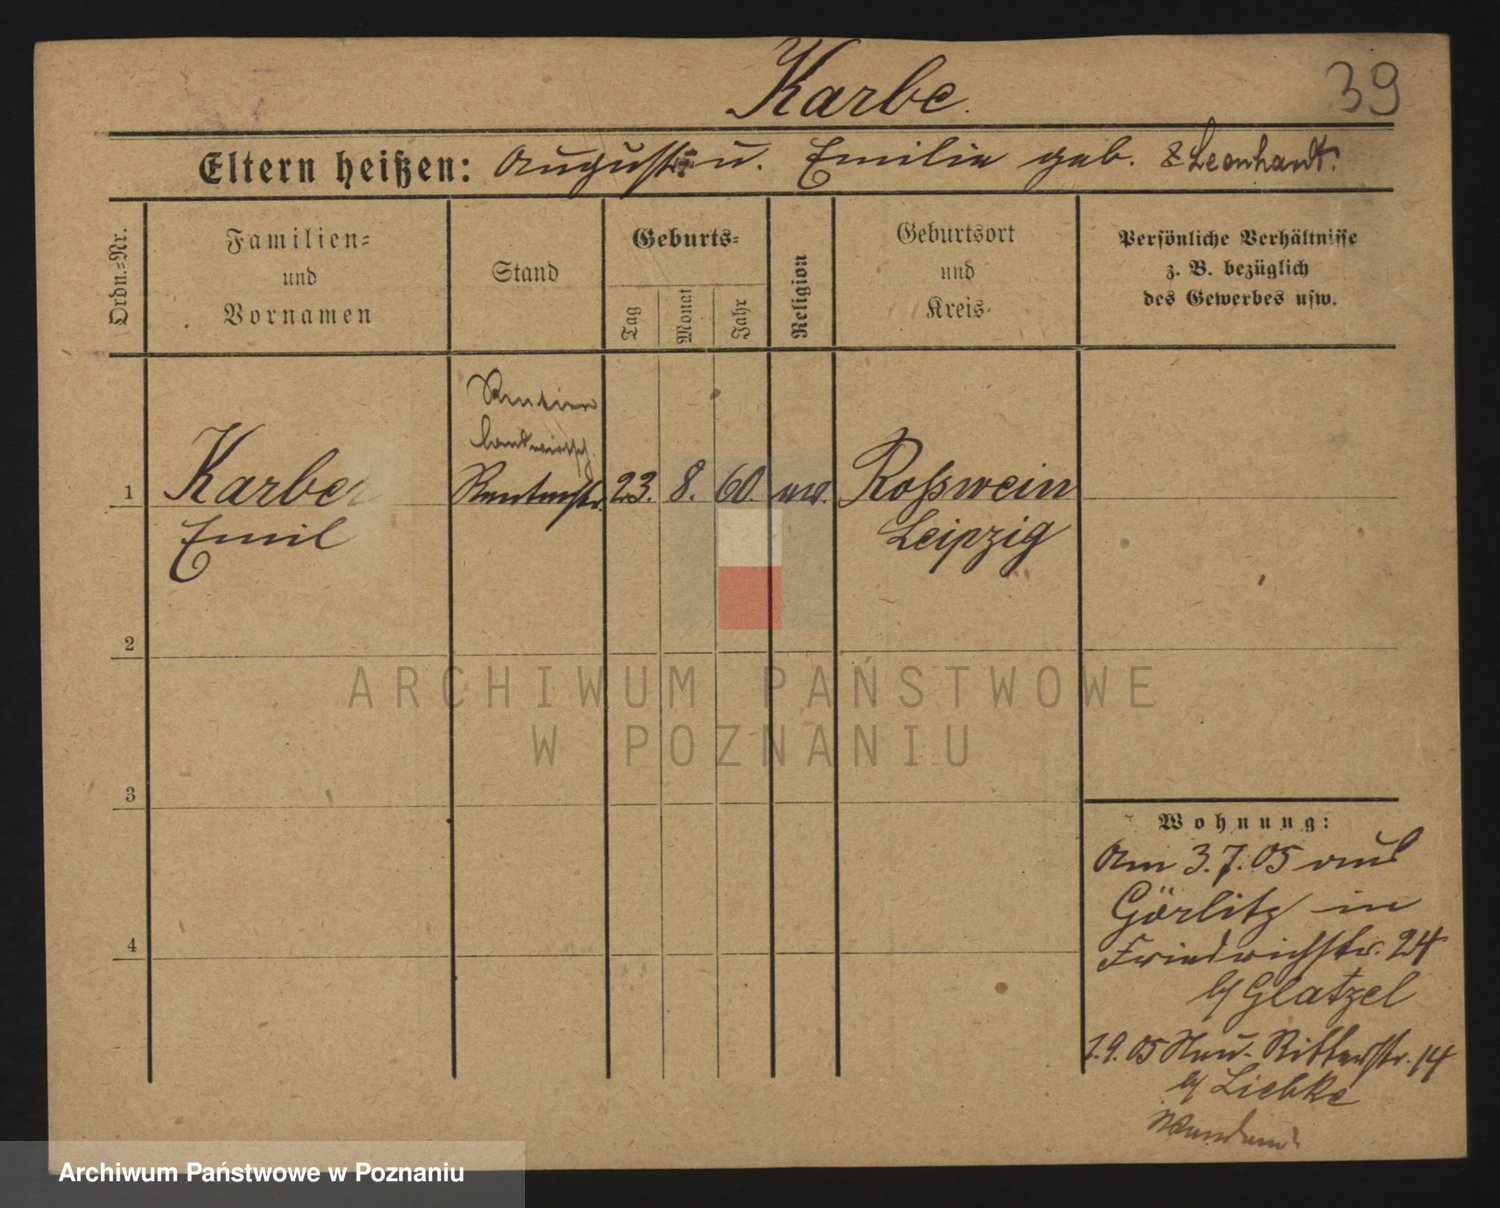 Karbe.
39
Eltern heißen: August u. Emilie geb. Leonhardt.
Ordn.=Nr.
Familien=
und
Vornamen
Stand
Geburts=
Tag
Monat
Jahr
Religion
Geburtsort
und
Kreis
Persönliche Verhältnisse
z. B. bezüglich
des Gewerbes usw.
Rentier
landwirtsch.
1 Karbe 23. 8. 60 Roßwein
Emil Leipzig
2
3
4
Wohnung:
Am 3.7.05 aus
Görlitz in
Friedrichstr. 24
b/ Glatzel
1.9.05 Neu- Ritterstr. 14
b/ Liebke
ARCHIWUM PAŃSTWOWE
W POZNANIU
Archiwum Państwowe w Poznaniu